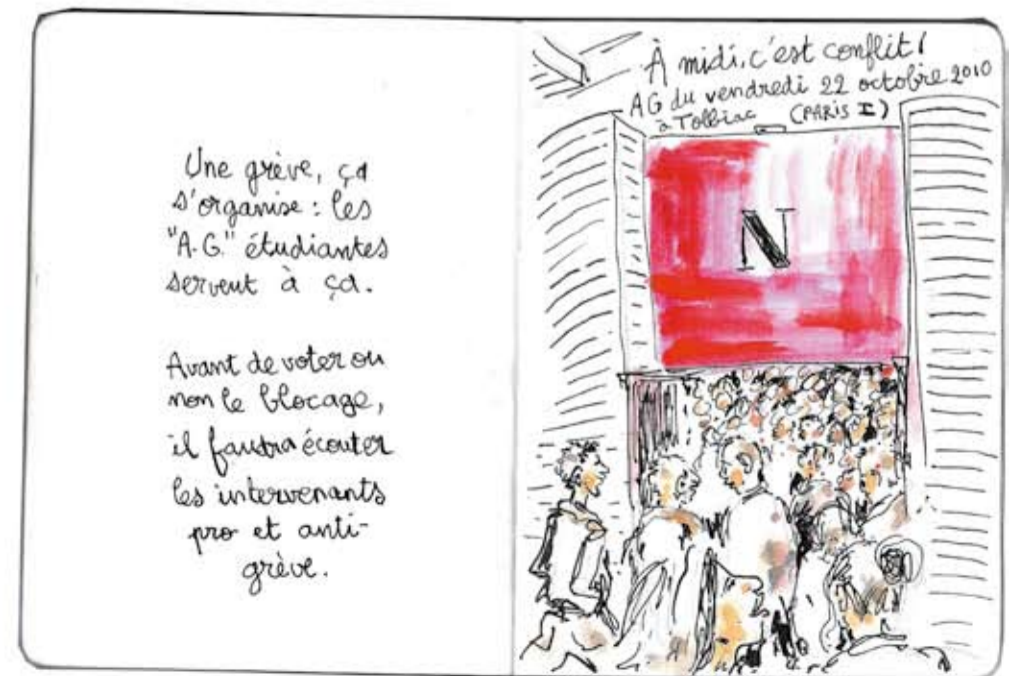 Une grève, ça
s'organise : les
"A.G." étudiantes
servent à ça.
Avant de voter ou
non le blocage,
il faudra écouter
les intervenants
pro et anti-
grève.
À midi, c'est conflit !
AG du vendredi 22 octobre 2010
à Tolbiac (PARIS I)
N